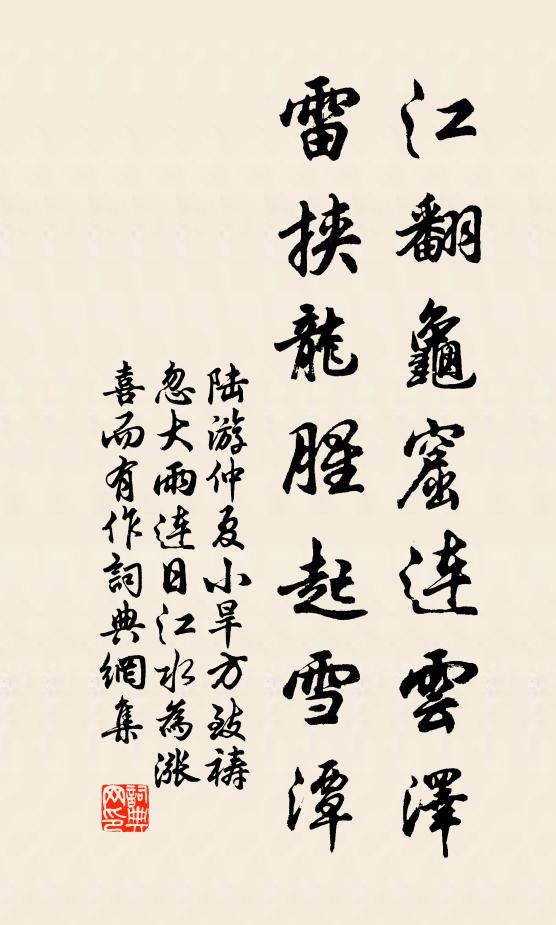 江翻龜窟連雲澤
雷挾龍腥起雪潭
陆游仲夏小旱方致禱
忽大雨连日江水為漲
喜而有作詞典網集
詞典网印